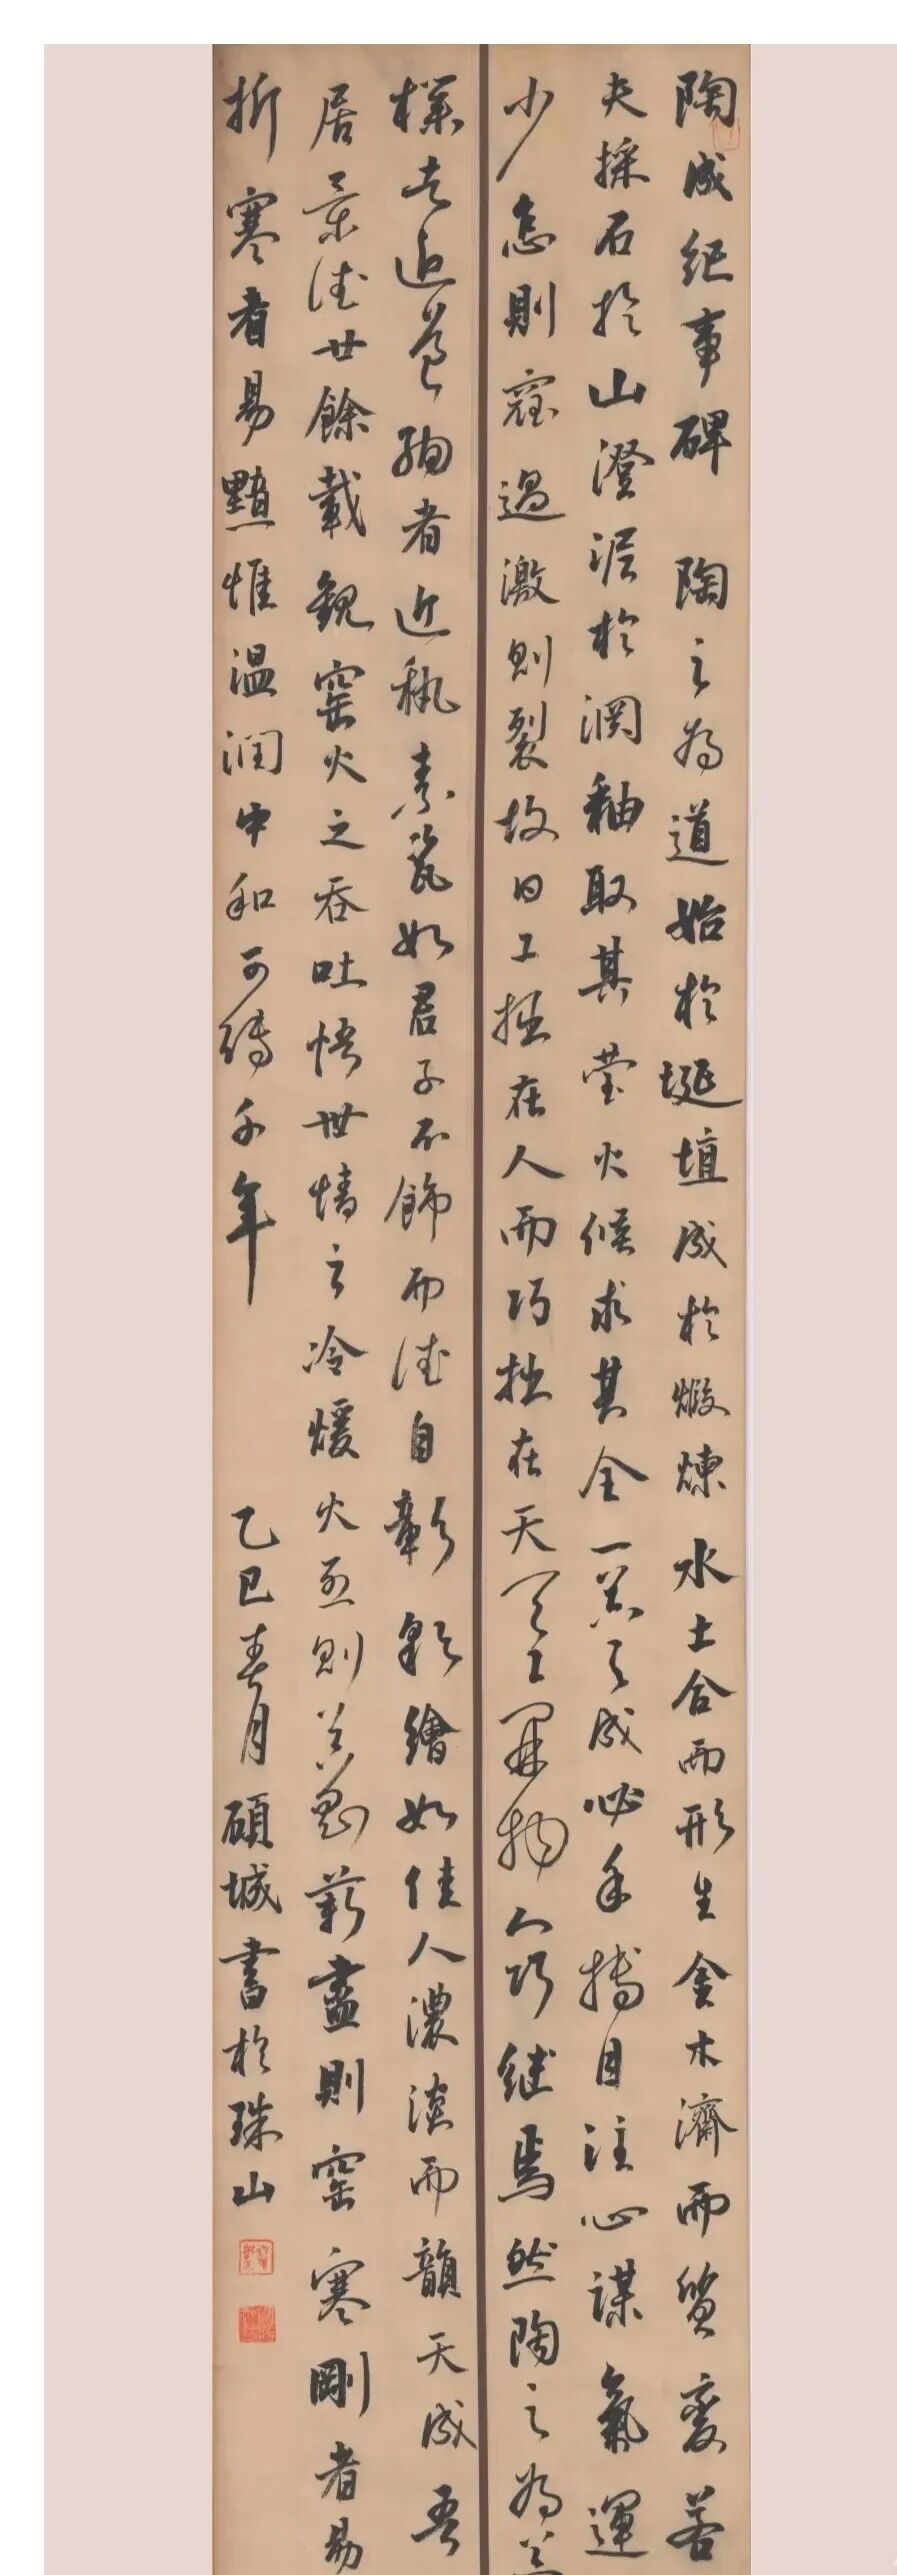 陶成纪事碑 陶之为道始於埏埴成於煅煉水土合而形生金木濟而質變若
夫採石於山澄泥於澗釉取其莹火候求其全一器之成必手摶目注心谋氣運
少怠則窳過激則裂故曰工拙在人而巧拙在天天工開物人巧继焉然陶之为
樸者近執素瓷如君子不飾而德自彰彩繪如佳人濃淡而韻天成吾
居景德廿餘載觀窑火之吞吐悟世情之冷煖火烈則器裂薪盡則窑寒剛者易
折寒者易黯惟温润中和可傳千年
乙巳春月碩城書於珠山